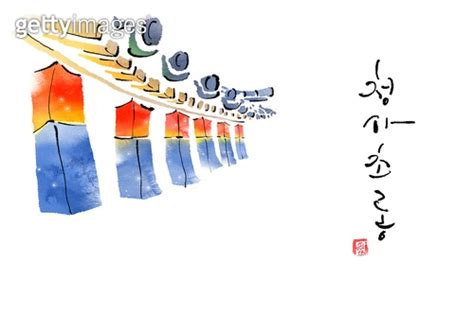 gettyimages
청
사
초
롱